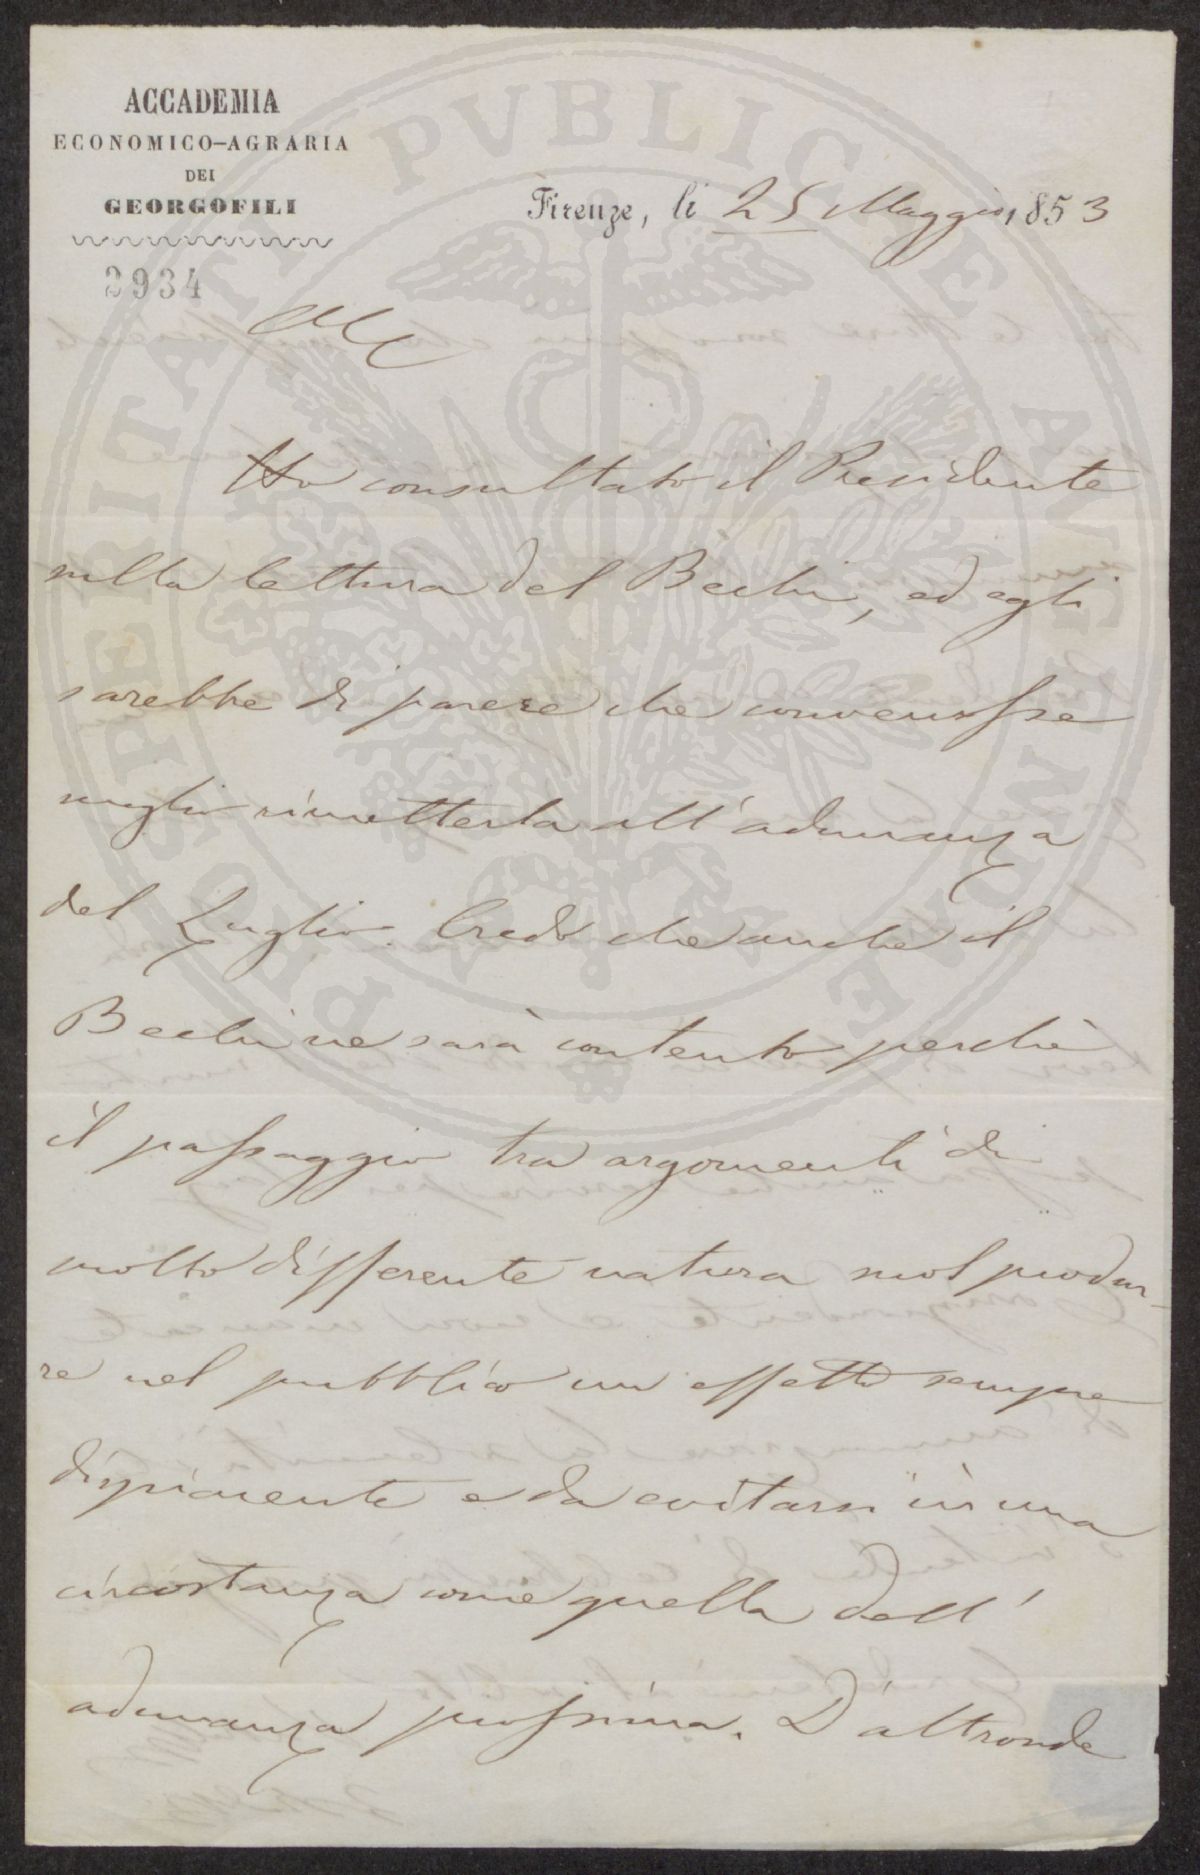 ACCADEMIA
ECONOMICO-AGRARIA
DEI
GEORGOFILI
2934
Firenze, li 25 Maggio 1853
Ho consultato il Presidente
sulla lettura del Bechi, ed egli
sarebbe di parere che convenisse
meglio rimetterla all'adunanza
del Luglio. Credo che anche il
Bechi ne sarà contento perchè
il passaggio tra argomenti di
molto differente natura suol produr-
re nel pubblico un effetto sempre
dispiacente e da evitarsi in una
circostanza come quella dell'
adunanza prossima. D'altronde
PROSPERITATI PVBLICAE AVGENDAE